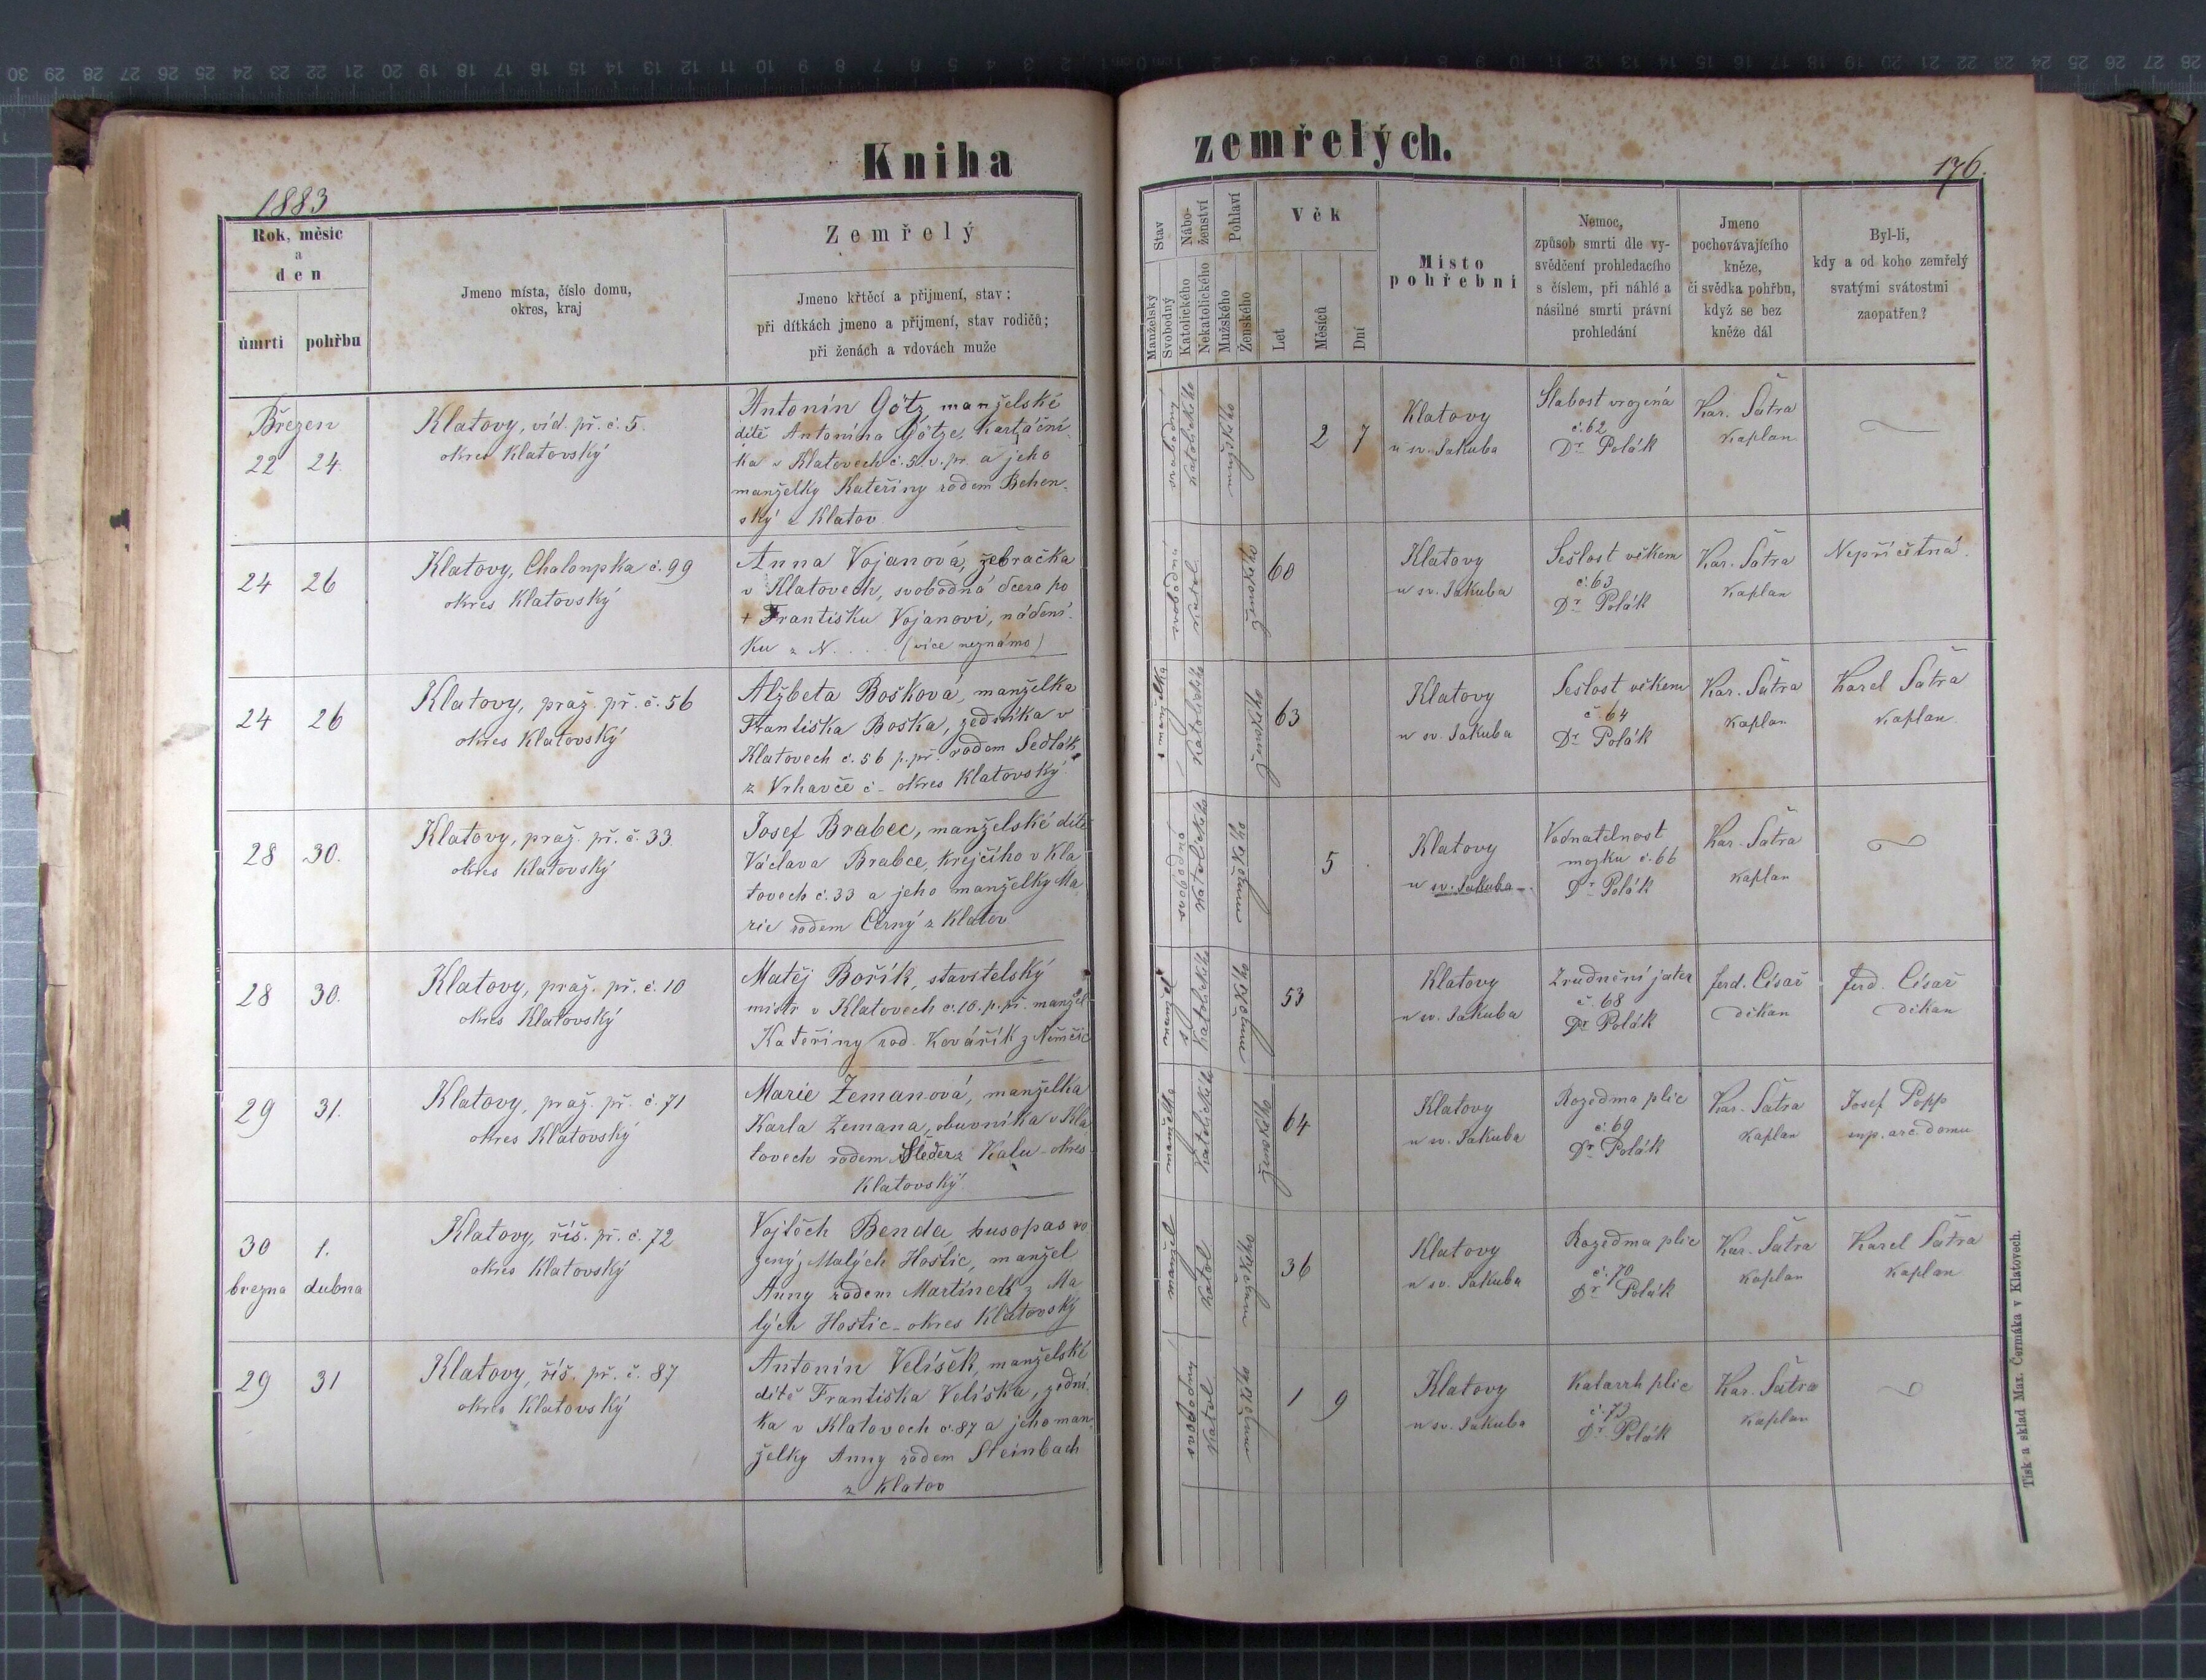 Kniha zemřelých.
1883
176.
Rok, měsíc
a
den
úmrtí
pohřbu
Jmeno místa, číslo domu,
okres, kraj
Zemřelý
Jmeno křtěcí a přijmení, stav:
při dítkách jmeno a přijmení, stav rodičů;
při ženách a vdovách muže
Stav
Manželský
Svobodný
Nábo-
ženství
Katolického
Nekatolického
Pohlaví
Mužského
Ženského
Věk
Let
Měsíců
Dní
Místo
pohřební
Nemoc,
způsob smrti dle vy-
svědčení prohledacího
s číslem, při náhlé a
násilné smrti právní
prohledání
Jmeno
pochovávajícího
kněze,
či svědka pohřbu,
když se bez
kněze dál
Byl-li,
kdy a od koho zemřelý
svatými svátostmi
zaopatřen?
Březen
22 24.
Klatovy, víd. př. č. 5.
okres Klatovský
Antonín Götz, manželské
dítě Antonína Götze, Kartáční-
ka v Klatovech č. 5. v. př. a jeho
manželky Kateřiny rodem Behen-
ský z Klatov
svobodný
katolického
mužského
2 7
Klatovy
u sv. Jakuba
Slabost vrozená
č. 62
Dr Polák
Kar. Šátra
kaplan
24 26
Klatovy, Chaloupka č. 99
okres Klatovský
Anna Vojanová, žebračka
v Klatovech, svobodná dcera po
+ Františku Vojanovi, nádení-
ku z N. . . . (více neznámo)
svobodná
katol.
ženského
60
Klatovy
u sv. Jakuba
Sešlost věkem
č. 63
Dr Polák
Kar. Šátra
kaplan
Nepříčetná.
24 26
Klatovy, praž. př. č. 56
okres Klatovský
Alžbeta Bošková, manželka
Františka Boška, zedníka v
Klatovech č. 56 p. př. rodem Sedlák
z Vrhavče č - okres Klatovský
manželka
katolického
ženského
63
Klatovy
u sv. Jakuba
Sešlost věkem
č. 64
Dr Polák
Kar. Šátra
kaplan
Karel Šátra
kaplan
28 30.
Klatovy, praž. př. č. 33.
okres Klatovský
Josef Brabec, manželské dítě
Václava Brabce, krejčího v Kla
tovech č. 33 a jeho manželky Ma
rie rodem Černý z Klatov
svobodné
katolického
mužského
5
Klatovy
u sv. Jakuba
Vodnatelnost
mozku č. 66
Dr Polák
Kar. Šátra
kaplan
28 30.
Klatovy, praž. př. č. 10
okres Klatovský
Matěj Bořík, stavitelský
mistr v Klatovech č. 10. p. př. manžel
Kateřiny rod. Kovářík z Němčic
manžel
katolického
mužského
53
Klatovy
u sv. Jakuba
Zrudnění jater
č. 68
Dr Polák
Ferd. Císař
děkan
Ferd. Císař
děkan
29 31.
Klatovy, praž. př. č. 71
okres Klatovský
Marie Zemanová, manželka
Karla Zemana, obuvníka v Kla
tovech rodem z Kalu - okres
Klatovský
manželka
katolického
ženského
64
Klatovy
u sv. Jakuba
Rozedma plic
č. 69
Dr Polák
Kar. Šátra
kaplan
Josef Popp
sup. arc. domu
30 1.
března dubna
Klatovy, říš. př. č. 72
okres Klatovský
Vojtěch Benda, husopas ro
zený z Malých Hoštic, manžel
Anny rodem Martínek z Ma
lých Hoštic - okres Klatovský
manžel
katol
mužského
36
Klatovy
u sv. Jakuba
Rozedma plic
č. 70
Dr Polák
Kar. Šátra
kaplan
Karel Šátra
kaplan
29 31
Klatovy, říš. př. č. 87
okres Klatovský
Antonín Velíšek, manželské
dítě Františka Velíška, zední-
ka v Klatovech č. 87 a jeho man
želky Anny rodem Steinbach
z Klatov
svobodný
katol
mužského
1 9
Klatovy
u sv. Jakuba
Katarrh plic
č. 73
Dr Polák
Kar. Šátra
kaplan
Tisk a sklad Max. Čermáka v Klatovech.